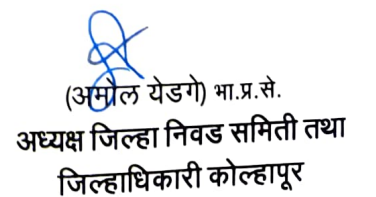 (अमोल येडगे) भा.प्र.से.
अध्यक्ष जिल्हा निवड समिती तथा
जिल्हाधिकारी कोल्हापूर